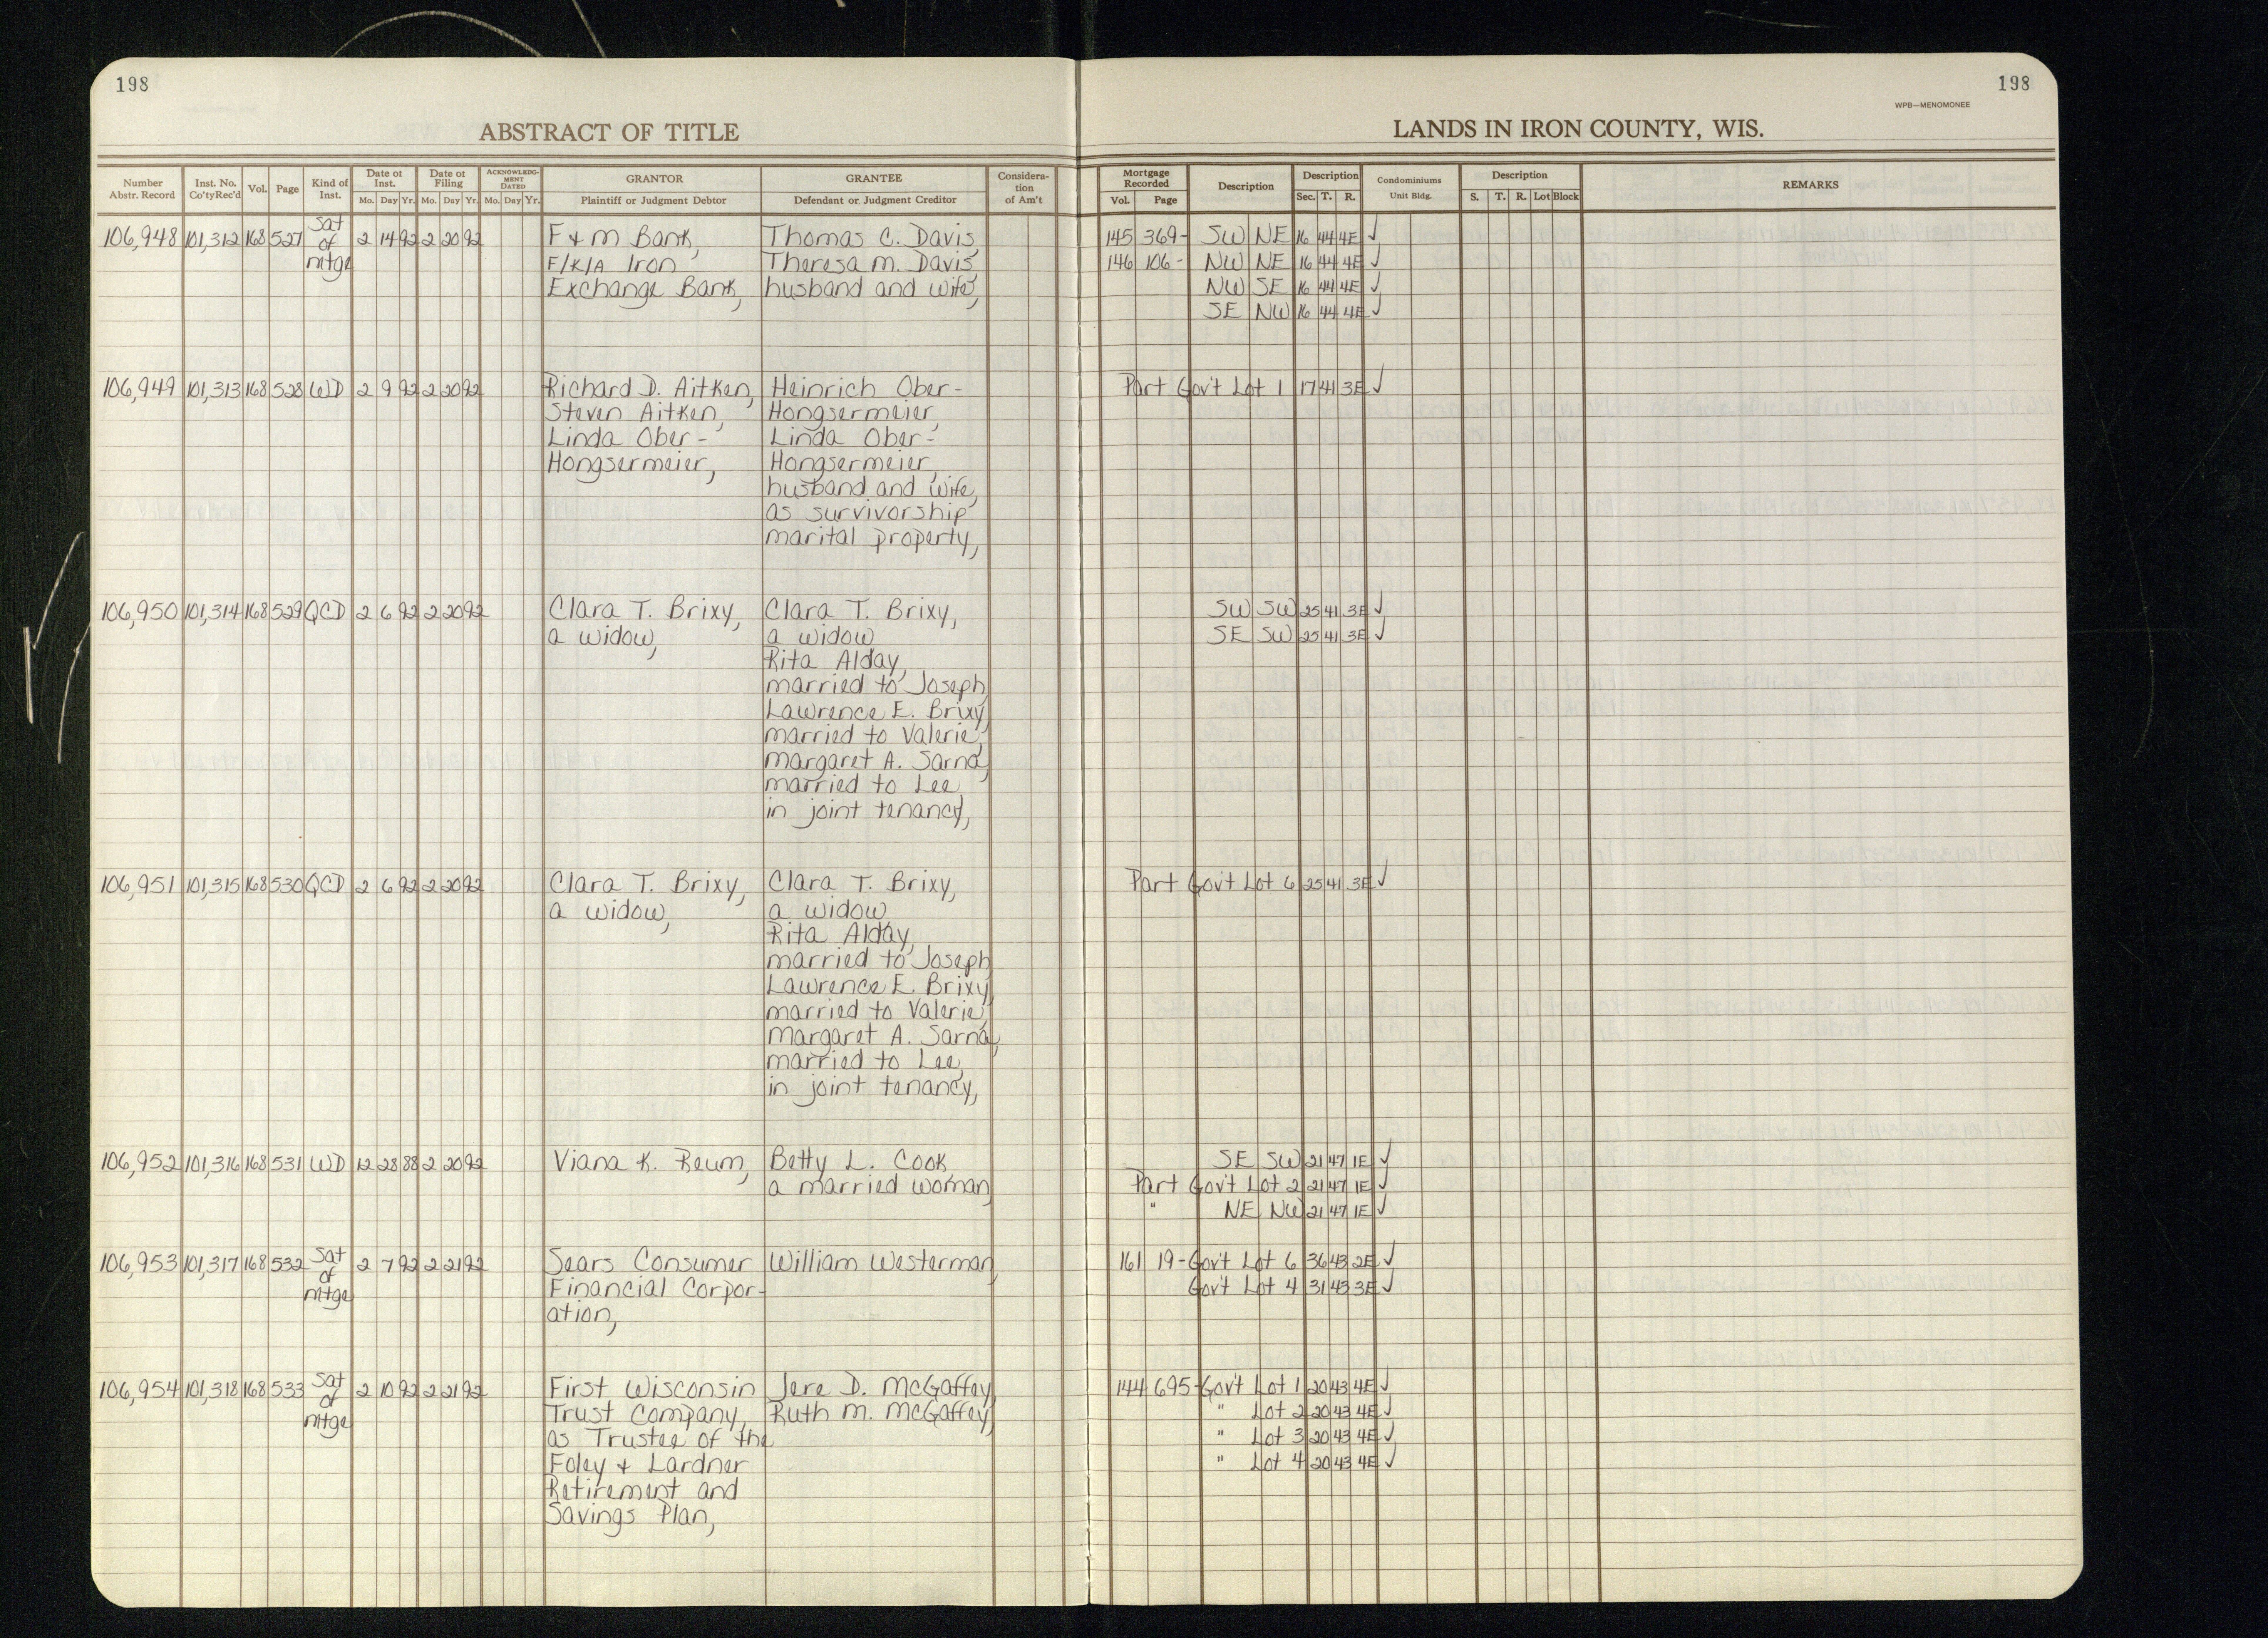 198
198
WPB—MENOMONEE
ABSTRACT OF TITLE
LANDS IN IRON COUNTY, WIS.
Number Abstr. Record | Inst. No. Co'ty Rec'd | Vol. | Page | Kind of Inst. | Date of Inst. Mo. Day Yr. | Date of Filing Mo. Day Yr. | ACKNOWLEDG-MENT DATED Mo. Day Yr. | GRANTOR Plaintiff or Judgment Debtor | GRANTEE Defendant or Judgment Creditor | Considera-tion of Am't | Mortgage Recorded Vol. Page | Description | Description Sec. T. R. | Condominiums Unit Bldg. | Description S. T. R. Lot Block | REMARKS
106,948 101,312 168 527 Sat of mtge 2 14 92 2 20 92 F & M Bank, Thomas C. Davis, 145 369- SW NE 16 44 4E ✓
F/K/A Iron Theresa M. Davis, 146 106- NW NE 16 44 4E ✓
Exchange Bank, husband and wife, NW SE 16 44 4E ✓
SE NW 16 44 4E ✓
106,949 101,313 168 528 WD 2 9 92 2 20 92 Richard D. Aitken, Heinrich Ober- Part Gov't Lot 1 17 41 3E ✓
Steven Aitken, Hongsermeier,
Linda Ober- Linda Ober-
Hongsermeier, Hongsermeier,
husband and wife,
as survivorship
marital property,
106,950 101,314 168 529 QCD 2 6 92 2 20 92 Clara T. Brixy, Clara T. Brixy, SW SW 25 41 3E ✓
a widow, a widow, SE SW 25 41 3E ✓
Rita Alday,
married to Joseph,
Lawrence E. Brixy,
married to Valerie,
Margaret A. Sarna,
married to Lee,
in joint tenancy,
106,951 101,315 168 530 QCD 2 6 92 2 20 92 Clara T. Brixy, Clara T. Brixy, Part Gov't Lot 6 25 41 3E ✓
a widow, a widow,
Rita Alday,
married to Joseph,
Lawrence E. Brixy,
married to Valerie,
Margaret A. Sarna,
married to Lee,
in joint tenancy,
106,952 101,316 168 531 WD 12 28 88 2 20 92 Viana K. Reum, Betty L. Cook, SE SW 21 47 1E ✓
a married woman, Part Gov't Lot 2 21 47 1E ✓
" NE NW 21 47 1E ✓
106,953 101,317 168 532 Sat of mtge 2 7 92 2 21 92 Sears Consumer William Westerman, 161 19- Gov't Lot 6 36 43 2E ✓
Financial Corpor- Gov't Lot 4 31 43 3E ✓
ation,
106,954 101,318 168 533 Sat of mtge 2 10 92 2 21 92 First Wisconsin Jere D. McGaffey, 144 695- Gov't Lot 1 20 43 4E ✓
Trust Company, Ruth M. McGaffey, " Lot 2 20 43 4E ✓
as Trustee of the " Lot 3 20 43 4E ✓
Foley & Lardner " Lot 4 20 43 4E ✓
Retirement and
Savings Plan,